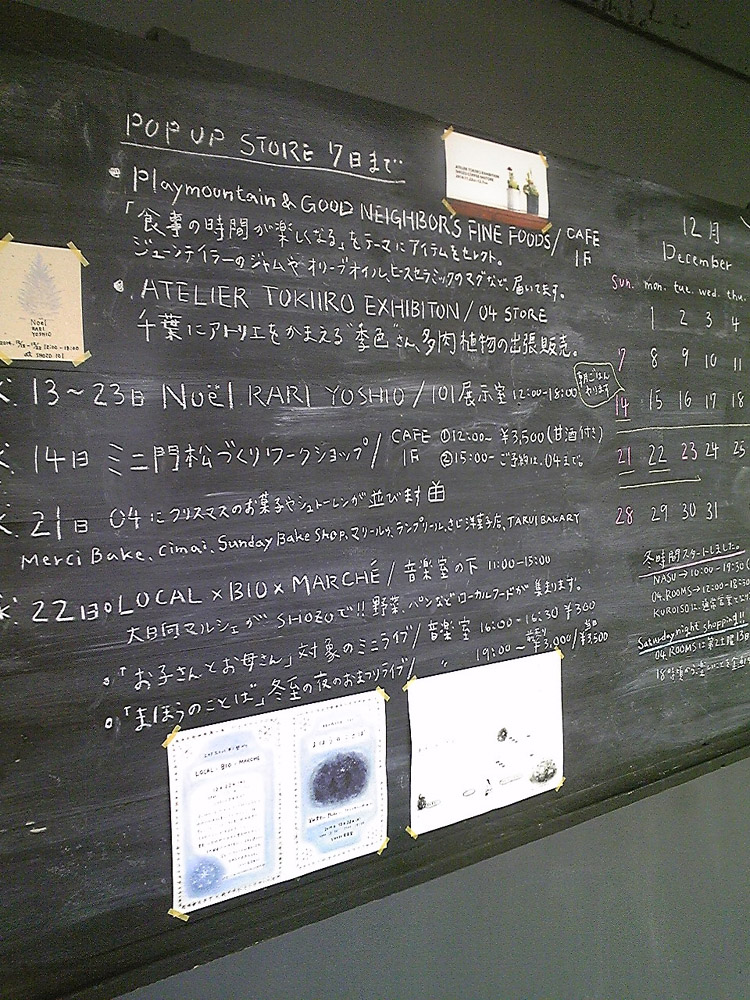 POP UP STORE 7日まで
Playmountain & GOOD NEIGHBOR'S FINE FOODS / CAFE 1F
「食事の時間が楽しくなる」をテーマにアイテムをセレクト。
ジューンテイラーのジャムやオリーブオイル、ヒースセラミックのマグなど、届いてます。
ATELIER TOKIIRO EXHIBITON / 04 STORE
千葉にアトリエをかまえる"季色"さん、多肉植物の出張販売。
13〜23日 Noël RARI YOSHIO / 101 展示室 12:00-18:00
14日 ミニ門松づくりワークショップ / CAFE 1F ①12:00~ ¥3,500(甘酒付き)
②15:00~ ご予約は、04まで。
21日 04にクリスマスのお菓子やシュトーレンが並びます
Merci Bake、cimai、Sunday Bake Shop、マリールゥ、テンプリール、きじ洋菓子店、TARUI BAKARY
22日 LOCAL × BIO × MARCHÉ / 音楽室の下 11:00-15:00
大日向マルシェがSHOZOで!! 野菜、パンなどローカルフードが集まります。
「お子さんとお母さん」対象のミニライブ / 音楽室 16:00-16:30 ¥300
「まほうのことば」冬至の夜のおまつりライブ / 〃 19:00〜 ¥3,000 / 当日 ¥3,500
12月
December
Sun. mon. tue. wed. thu.
1 2 3 4
7 8 9 10 11
14 15 16 17 18
21 22 23 24 25
28 29 30 31
冬時間スタートしました。
NASU→10:00-19:30
04.ROOMS→12:00-18
KUROISOは、通常営業
Saturday night shopping!!
04.ROOMSは第2土曜13日
Noël
RARI
YOSHIO
12:00-18:00
at SHOZO 101
ATELIER TOKIIRO EXHIBITION
LOCAL・BIO・MARCHE
まほうのことば